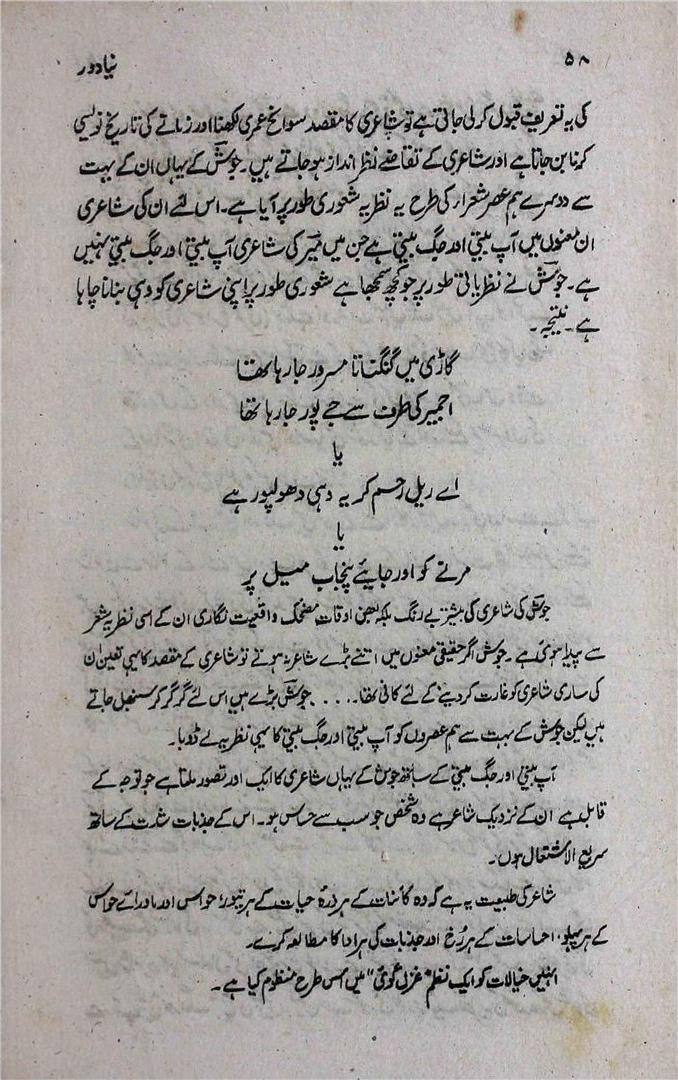 ۵۸
نیا دور
کی یہ تعریف قبول کرلی جاتی ہے تو شاعری کا مقصد سوانح عمری لکھنا اور زمانے کی تاریخ نویسی
کرنا بن جاتا ہے اور شاعری کے تقاضے نظر انداز ہو جاتے ہیں۔ جوش کے یہاں ان کے بہت
سے دوسرے ہم عصر شعراء کی طرح یہ نظریہ شعوری طور پر آیا ہے۔ اس لئے ان کی شاعری
ان معنوں میں آپ بیتی اور جگ بیتی ہے جن میں میر کی شاعری آپ بیتی اور جگ بیتی نہیں
ہے۔ جوش نے نظریاتی طور پر جو کچھ سمجھا ہے شعوری طور پر اپنی شاعری کو وہی بنانا چاہا
ہے۔ نتیجہ۔
گاڑی میں گنگناتا مسرور جا رہا تھا
اجمیر کی طرف سے جے پور جا رہا تھا
یا
اے ریل رحم کر یہ وہی دھولپور ہے
یا
مرنے کو اور جایئے پنجاب میل پر
جوش کی شاعری کی بیشتر بے رنگ بلکہ بعض اوقات مضحک واقعیت نگاری ان کے اسی نظریۂ شعر
سے پیدا ہوئی ہے۔ جوش اگر حقیقی معنوں میں اتنے بڑے شاعر نہ ہوتے تو شاعری کے مقصد کا یہی تعین ان
کی ساری شاعری کو غارت کر دینے کے لئے کافی تھا۔ .... جوش بڑے ہیں اس لئے گر گر کر سنبھل جاتے
ہیں لیکن جوش کے بہت سے ہم عصروں کو آپ بیتی اور جگ بیتی کا یہی نظریہ لے ڈوبا۔
آپ بیتی اور جگ بیتی کے ساتھ جوش کے یہاں شاعری کا ایک اور تصور ملتا ہے جو توجہ کے
قابل ہے ان کے نزدیک شاعر ہے وہ شخص جو سب سے حساس ہو۔ اس کے جذبات شدت کے ساتھ
سریع الاشتعال ہوں۔
شاعر کی طبیعت یہ ہے کہ وہ کائنات کے ہر ذرہ حیات کے ہر تیور، حواس اور ماورائے حواس
کے ہر پہلو، احساسات کے ہر رخ اور جذبات کی ہر ادا کا مطالعہ کرے۔
انہیں خیالات کو ایک نظم "غزل گوئی" میں اس طرح منظوم کیا ہے۔